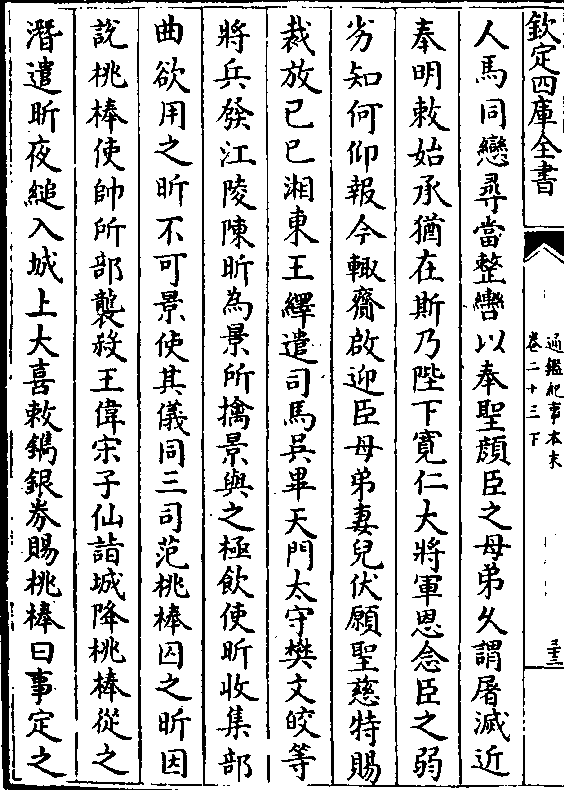 欽定四庫全書
通鑑紀事本末
卷二十三下
三三
人馬同戀尋當整轡以奉聖顔臣之母弟久謂屠滅近
奉明敕始承猶在斯乃陛下寛仁大將軍恩念臣之弱
劣知何仰報今輙齎啟迎臣母弟妻兒伏願聖慈特賜
裁放已巳湘東王繹遣司馬吳曅天門太守樊文皎等
將兵發江陵陳昕為景所擒景與之極飲使昕收集部
曲欲用之昕不可景使其儀同三司范桃棒囚之昕因
說桃棒使帥所部襲殺王偉宋子仙詣城降桃棒從之
潛遣昕夜縋入城上大喜敕鐫銀劵賜桃棒曰事定之